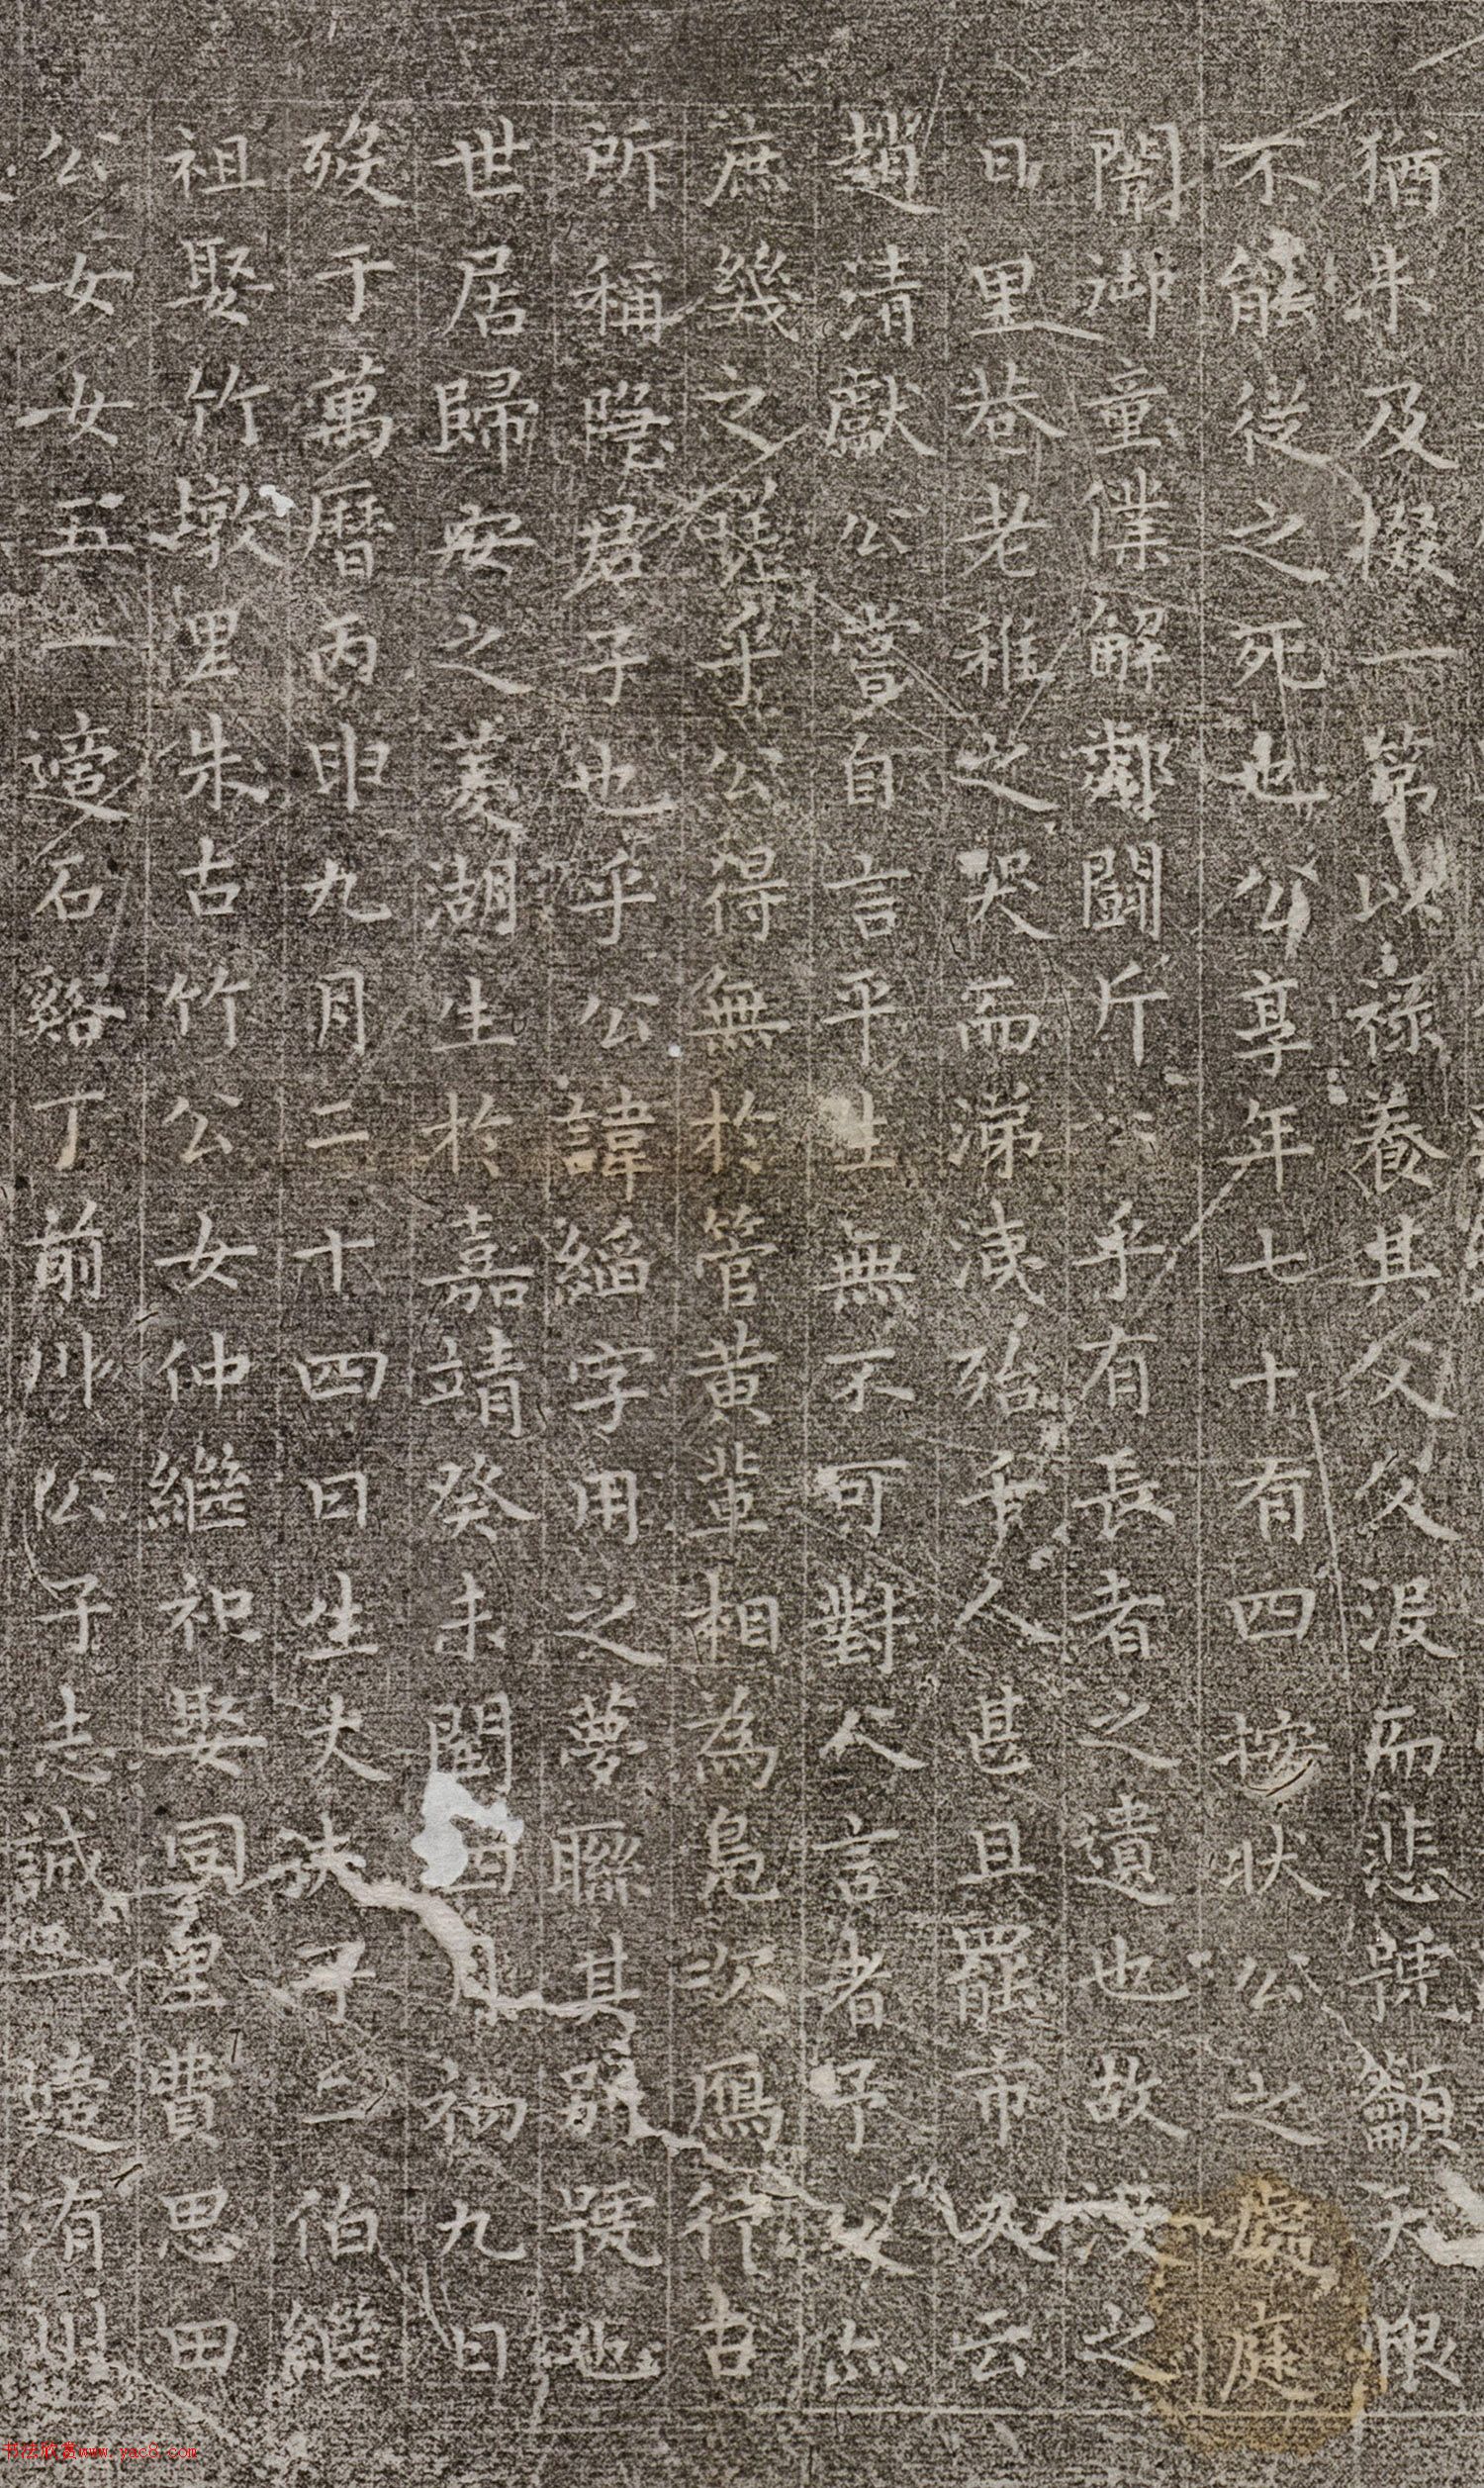 猶未及綴一第以祿養其父父沒而悲號籲天恨
不能從之死也公享年七十有四按狀公之處庭
闈御童僕解鄰鬪斤斤乎有長者之遺也故沒之
日里巷老稚之哭而涕洟殆千人甚且罷市人云
趙清獻公嘗自言平生無不可對人言者予父亦
庶幾之嗟乎公得無於管黃輩相為鳧次鴈行古
所稱隱君子也乎公諱縚字用之夢聯其別號也
世居歸安之菱湖生於嘉靖癸未閏四月初九日
歿于萬曆丙申九月二十四日生丈夫子二伯繼
祖娶竹墩里朱古竹公女仲繼祀娶同里費思田
公女女五一適石谿丁前川公子志誠一適有明
书法欣赏www.yac8.com